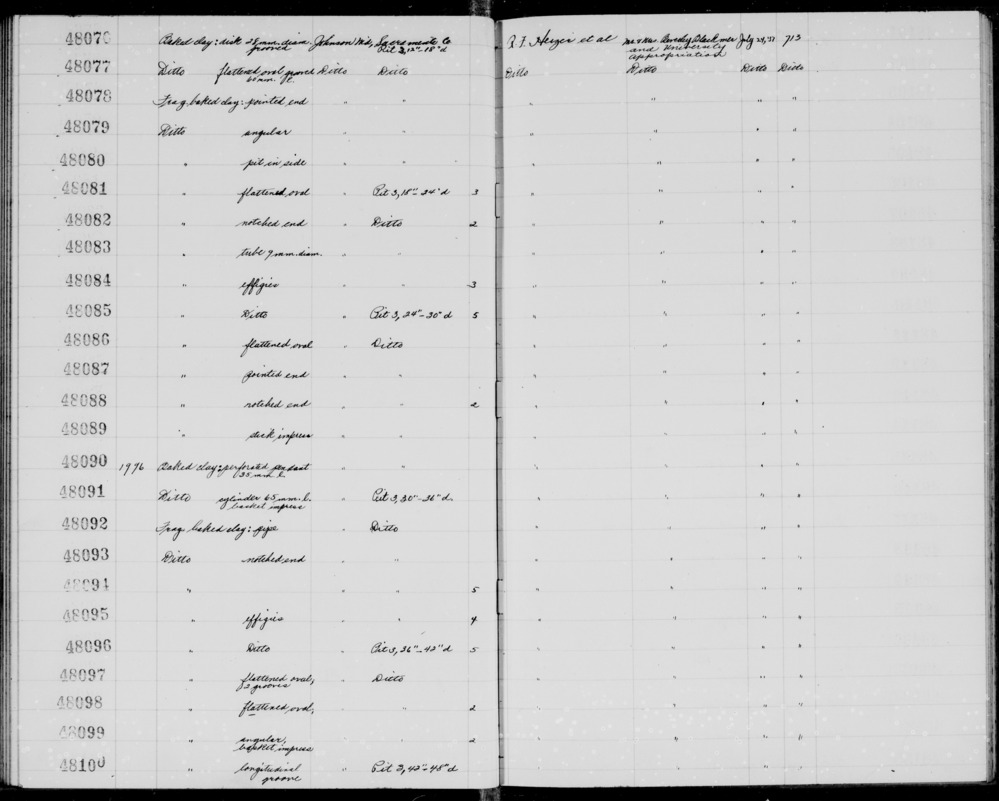 48076 Baked clay: disk 28 mm. diam. grooved Johnson Md, Sacramento Co Pit 3, 12"-18" d R F Heizer et al Mr & Mrs Beverley Blackmer and University Appropriation July 29, '37 713
48077 Ditto flattened oval grooved Ditto Ditto Ditto Ditto Ditto Ditto
48078 Frag. baked clay: pointed end " " " " " "
48079 Ditto angular " " " " " "
48080 " pit in side " " " " " "
48081 " flattened oval " Pit 3, 18"-24" d 3 " " " "
48082 " notched end " Ditto 2 " " " "
48083 " tube 9 mm. diam. " " " " " "
48084 " effigies " " 3 " " " "
48085 " Ditto " Pit 3, 24"-30" d 5 " " " "
48086 " flattened oval " Ditto " " " "
48087 " pointed end " " " " " "
48088 " notched end " " 2 " " " "
48089 " stick impress " " " " " "
48090 1996 Baked clay: perforated pendant 35 mm. l. " " " " " "
48091 Ditto cylinder 65 mm. l. basket impress " Pit 3, 30"-36" d. " " " "
48092 Frag. baked clay: pipe " Ditto " " " "
48093 Ditto notched end " " " " "
48094 " " " 5 " " " "
48095 " effigies " " 4 " " " "
48096 " Ditto " Pit 3, 36"-42" d 5 " " " "
48097 " flattened oval, 2 grooves " Ditto " " " "
48098 " flattened oval, " " 2 " " " "
48099 " angular, basket impress " " 2 " " " "
48100 " longitudinal groove " Pit 3, 42"-48" d " " " "